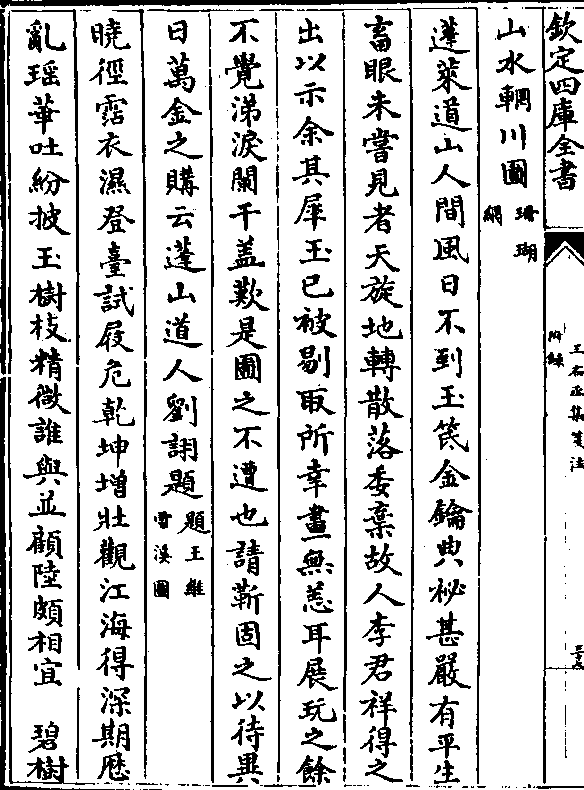 欽定四庫全書
山水輞川圖珊瑚網
蓬萊道山人間風日不到玉笢金鑰典祕甚嚴有平生
畜眼未嘗見者天旋地轉散落委棄故人李君祥得之
出以示余其犀玉已被剔取所幸畫無恙耳展玩之餘
不覺涕淚闌干盖歎是圖之不遭也請靳固之以待異
日萬金之購云蓬山道人劉詡題題王維雪溪圖
曉徑霑衣濕登臺試屐危乾坤增壯觀江海得深期歴
亂瑶華吐紛披玉樹枝精微誰與並顧陸頗相宜 碧樹
王右丞集箋注
附録